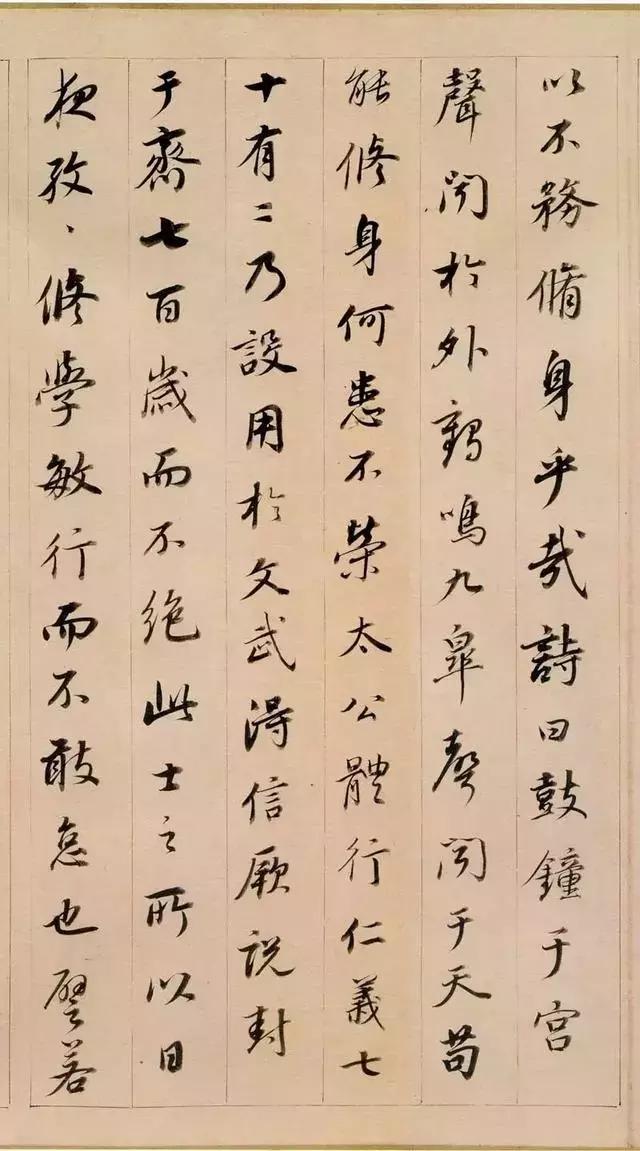 以不務脩身乎哉詩曰鼓鐘于宮
聲聞於外鶴鳴九皐聲聞于天苟
能脩身何患不榮太公體行仁義七
十有二乃設用於文武得信厥說封
于齊七百歲而不絕此士之所以日
夜孜、脩學敏行而不敢怠也譬若